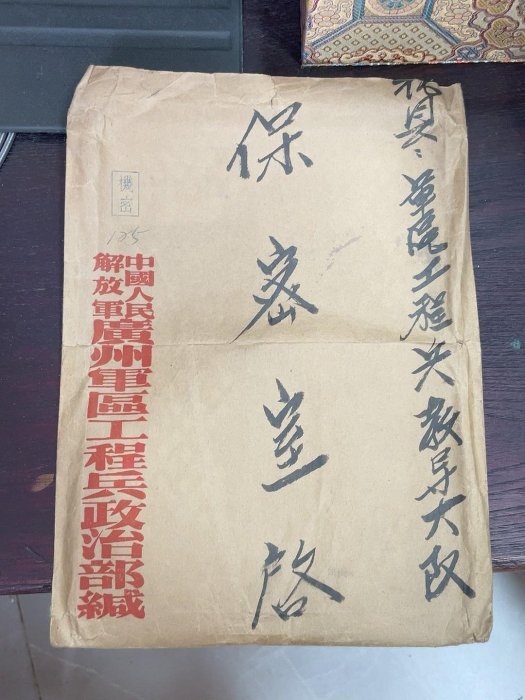 县：军区工程兵教导大队
保密室啓
機密
125
中國人民
解放軍
廣州軍區工程兵政治部緘